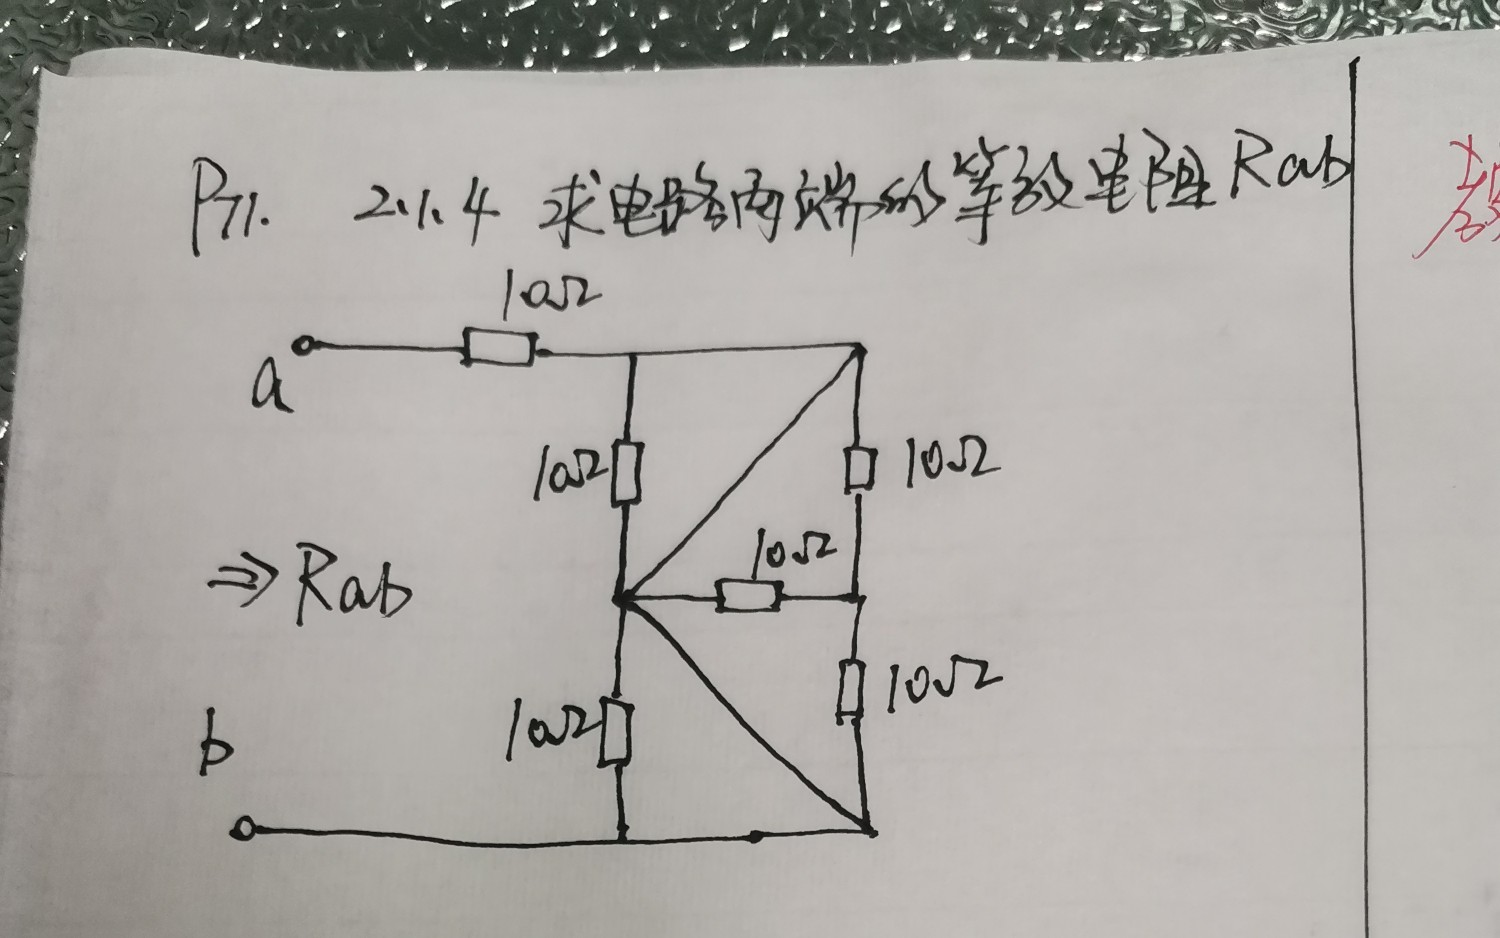 P71. 2.1.4 求电路两端的等效电阻Rab
10Ω
a
10Ω 10Ω
10Ω
⇒ Rab
10Ω
b 10Ω